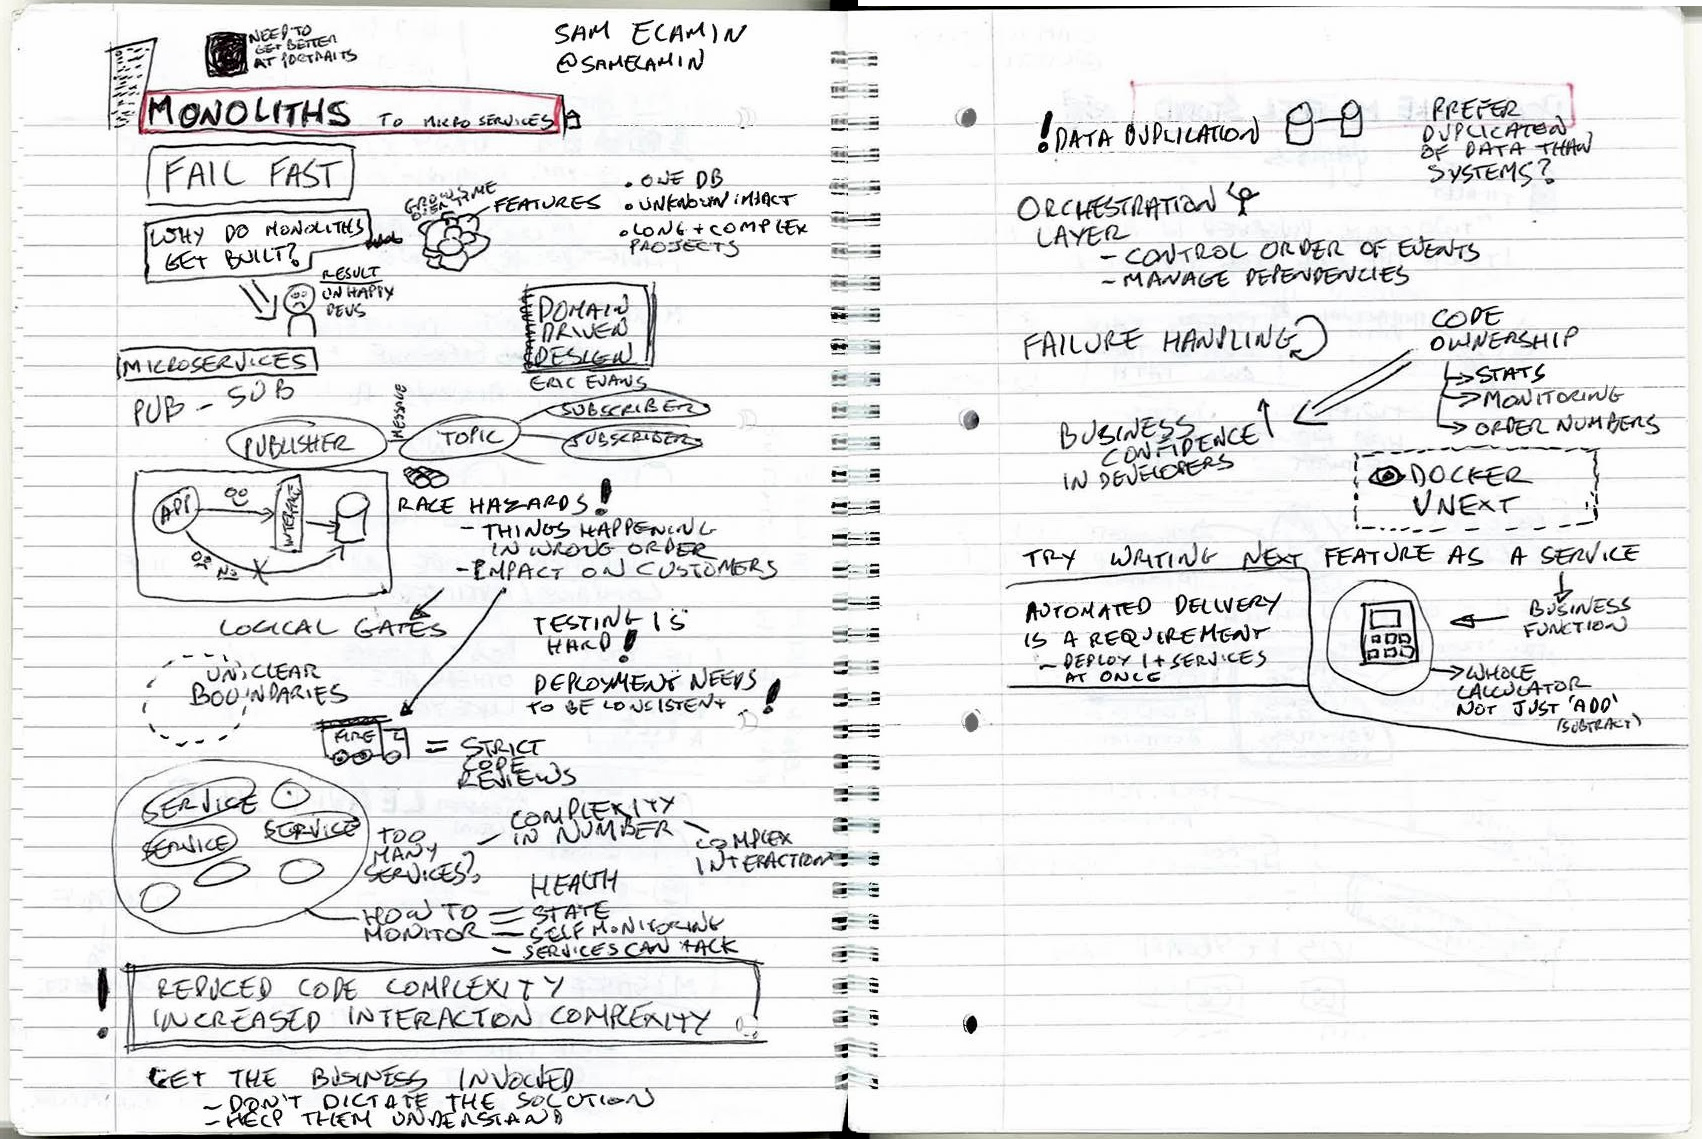 NEED TO
GET BETTER
AT PORTRAITS
SAM ELAMIN
@SAMELAMIN
MONOLITHS TO MICROSERVICES
FAIL FAST
WHY DO MONOLITHS
GET BUILT?
GROWS
OVER TIME
FEATURES
• ONE DB
• UNKNOWN IMPACT
• LONG + COMPLEX
PROJECTS
RESULT
UNHAPPY
DEVS
DOMAIN
DRIVEN
DESIGN
ERIC EVANS
MICROSERVICES
PUB - SUB
PUBLISHER
MESSAGE
TOPIC
SUBSCRIBER
SUBSCRIBER
API
INTERFACE
NO
RACE HAZARDS!
- THINGS HAPPENING
IN WRONG ORDER
- IMPACT ON CUSTOMERS
LOGICAL GATES
TESTING IS
HARD!
UNCLEAR
BOUNDARIES
DEPLOYMENT NEEDS
TO BE CONSISTENT!
FIRE
= STRICT
CODE
REVIEWS
SERVICE
SERVICE
SERVICE
TOO
MANY
SERVICES?
- COMPLEXITY
IN NUMBER
- COMPLEX
INTERACTION
HOW TO
MONITOR
HEALTH
- STATE
- SELF MONITORING
- SERVICES CAN TALK
! REDUCED CODE COMPLEXITY
INCREASED INTERACTION COMPLEXITY
GET THE BUSINESS INVOLVED
- DON'T DICTATE THE SOLUTION
- HELP THEM UNDERSTAND
! DATA DUPLICATION
PREFER
DUPLICATION
OF DATA THAN
SYSTEMS?
ORCHESTRATION
LAYER
- CONTROL ORDER OF EVENTS
- MANAGE DEPENDENCIES
FAILURE HANDLING
CODE
OWNERSHIP
STATS
MONITORING
ORDER NUMBERS
BUSINESS
CONFIDENCE
IN DEVELOPERS
DOCKER
VNEXT
TRY WRITING NEXT FEATURE AS A SERVICE
BUSINESS
FUNCTION
AUTOMATED DELIVERY
IS A REQUIREMENT
- DEPLOY 1+ SERVICES
AT ONCE
WHOLE
CALCULATOR
NOT JUST 'ADD'
(SUBTRACT)